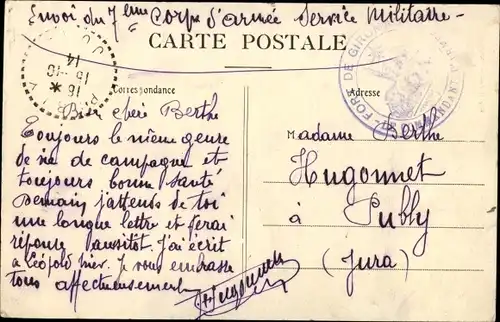 Envoi du 7ème Corps d'armée Service Militaire
CARTE POSTALE
14
15-10
16
*
Correspondance
Adresse
FORT DE GIRO
COMMANDANT
Bien chère Berthe
Toujours le même genre
de vie de campagne et
toujours bonne santé
Demain j'attends de toi
une longue lettre et ferai
réponse aussitôt. J'ai écrit
à Léopold hier. Je vous embrasse
tous affectueusement
Hugonnet
Madame Berthe
Hugonnet
à Publy
(Jura)